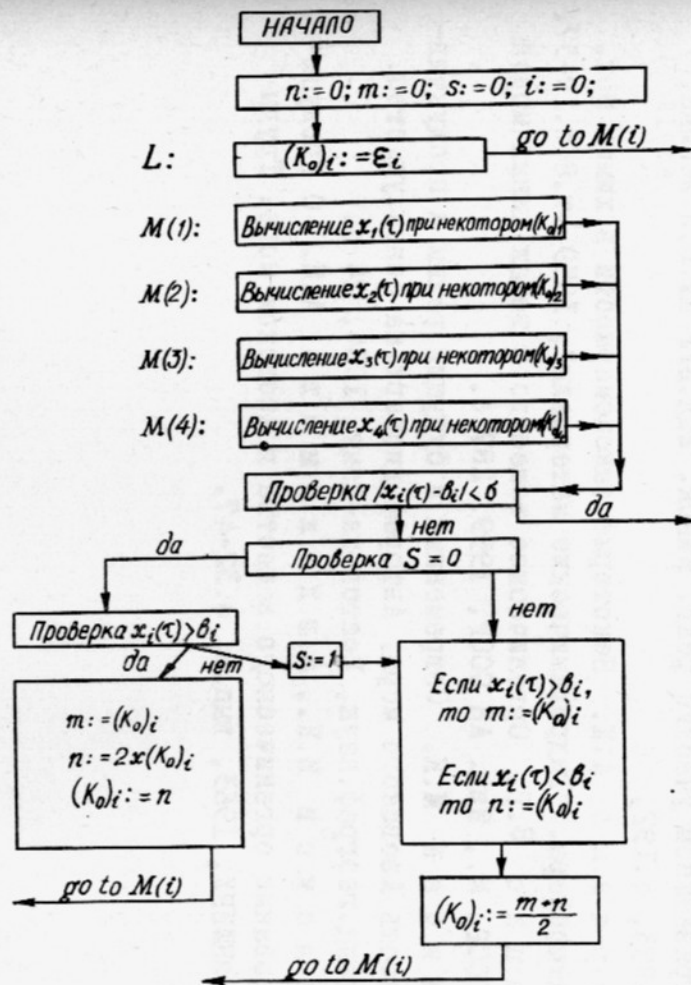 НАЧАЛО
n:=0; m:=0; s:=0; i:=0;
L:
(K₀)ᵢ:=εᵢ
go to M(i)
M(1):
Вычисление x₁(τ) при некотором (K₀)₁
M(2):
Вычисление x₂(τ) при некотором (K₀)₂
M(3):
Вычисление x₃(τ) при некотором (K₀)₃
M(4):
Вычисление x₄(τ) при некотором (K₀)₄
Проверка |xᵢ(τ)-вᵢ|<б
да
нет
Проверка S=0
да
нет
Проверка xᵢ(τ)>вᵢ
да
нет
S:=1
m:=(K₀)ᵢ
n:=2x(K₀)ᵢ
(K₀)ᵢ:=n
go to M(i)
Если xᵢ(τ)>вᵢ,
то m:=(K₀)ᵢ
Если xᵢ(τ)<вᵢ
то n:=(K₀)ᵢ
(K₀)ᵢ:=(m+n)/2
go to M(i)